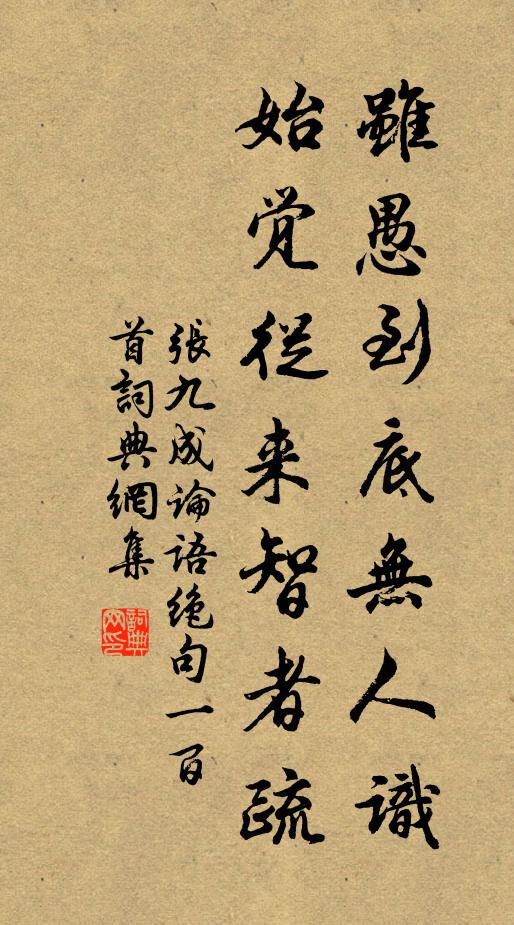 雖愚到底無人識
始覺從来智者疏
張九成論語絶句一百
首詞典網集
詞典網印